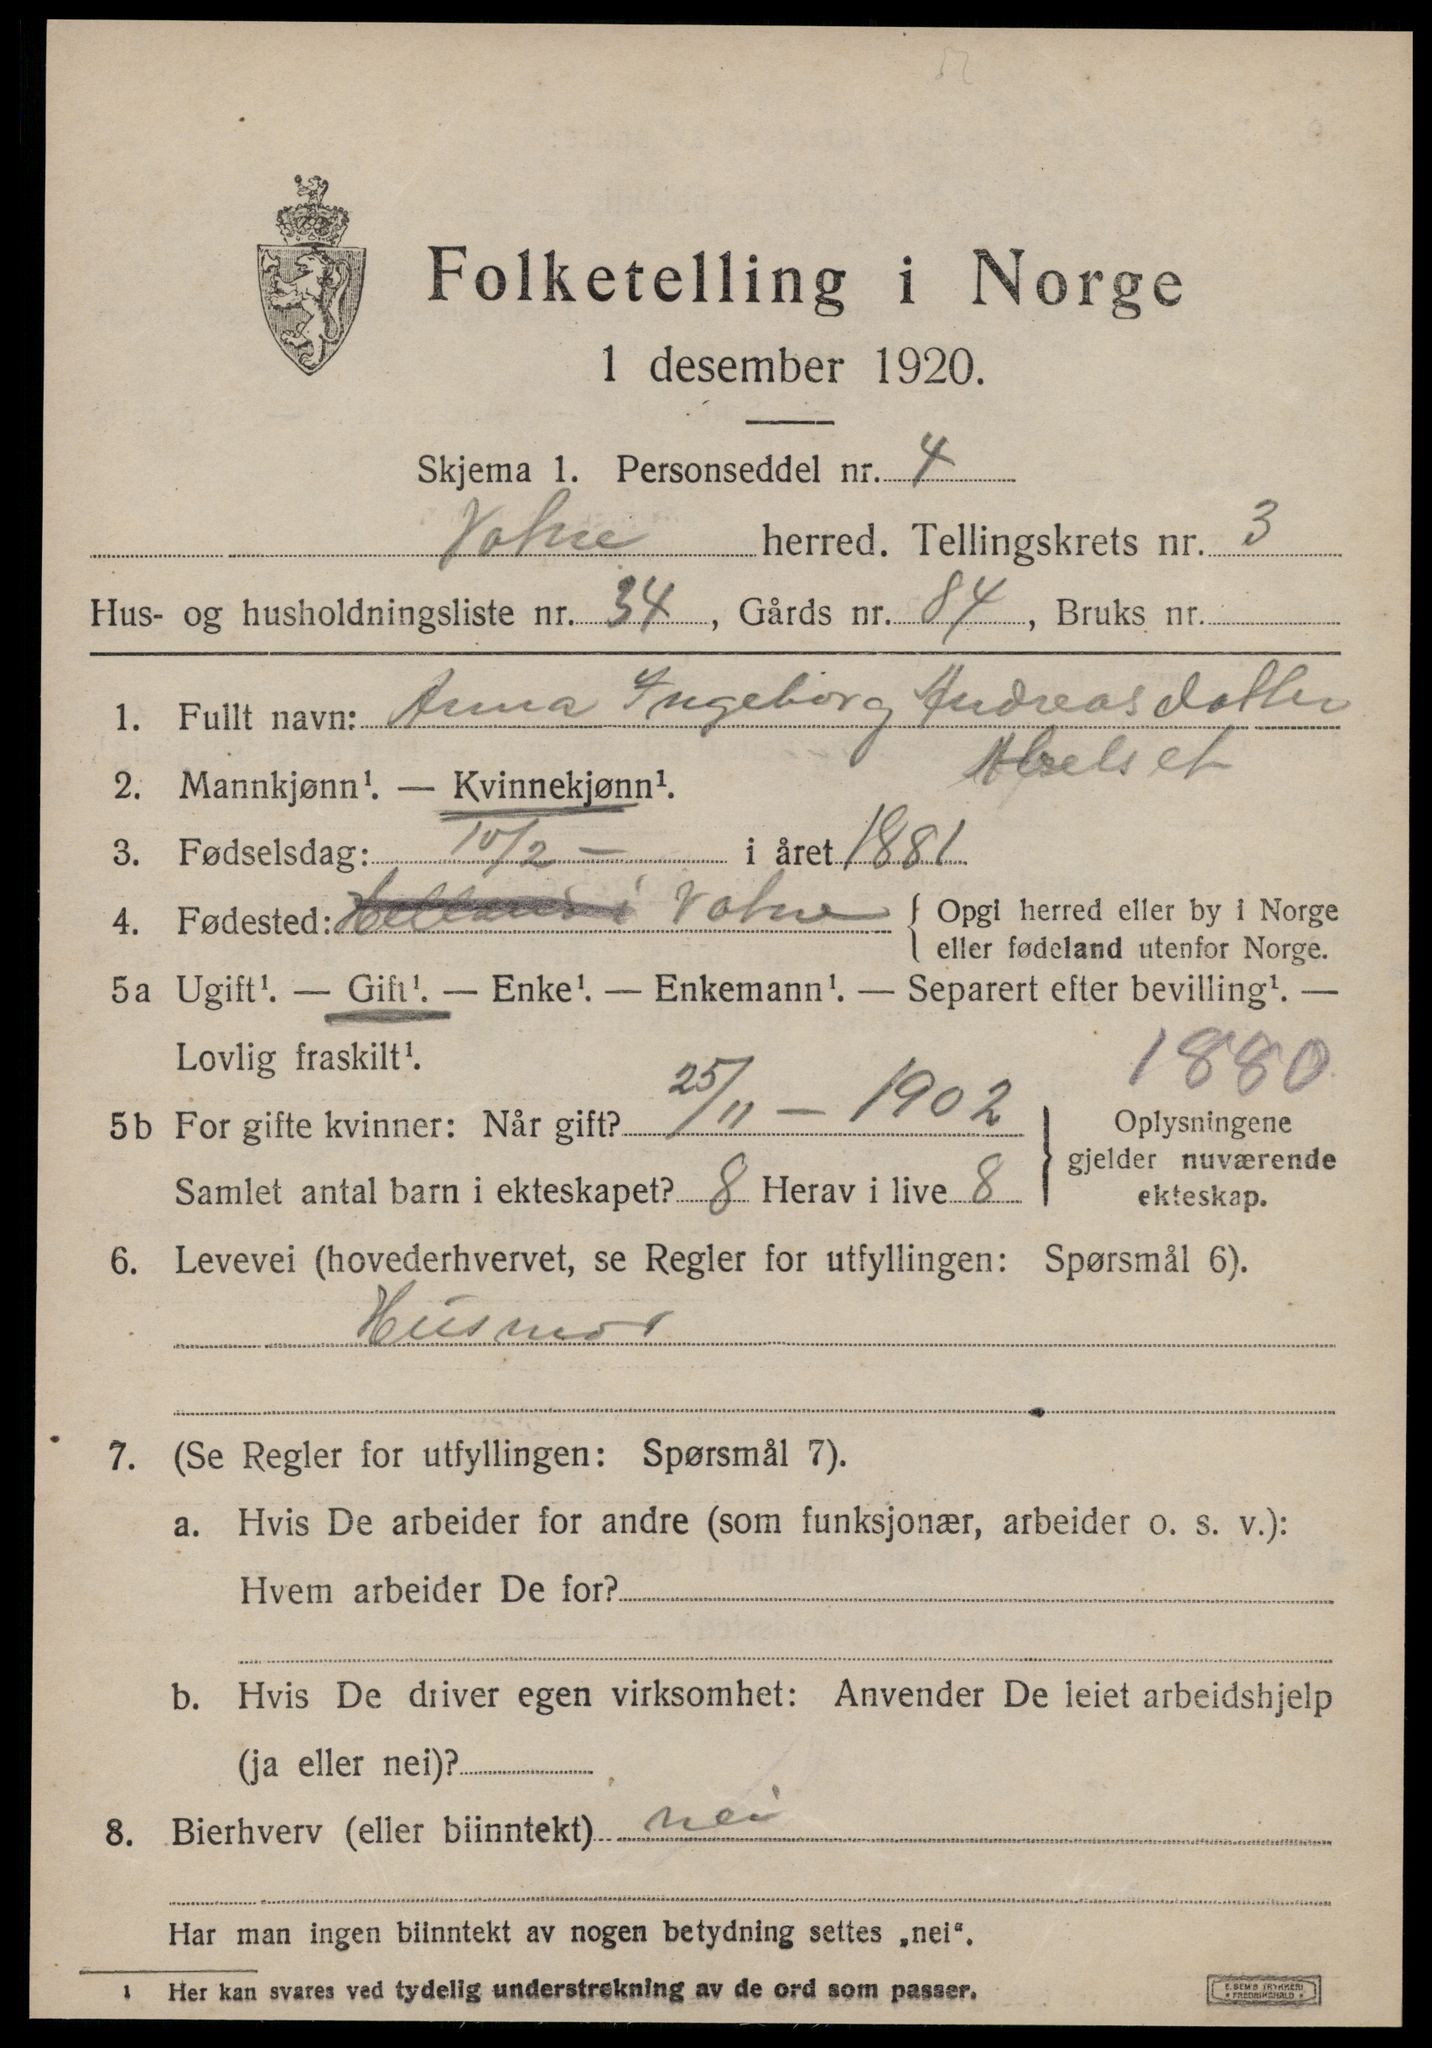 Folketelling i Norge
1 desember 1920.
Skjema 1. Personseddel nr. 4
Vatne herred. Tellingskrets nr. 3
Hus- og husholdningsliste nr. 34, Gårds nr. 84, Bruks nr.
1. Fullt navn: Anna Ingeborg Andreasdatter
2. Mannkjønn¹. — Kvinnekjønn¹.
3. Fødselsdag: 10/2 — i året 1881
4. Fødested: Helland i Vatne { Opgi herred eller by i Norge
eller fødeland utenfor Norge.
5a Ugift¹. — Gift¹. — Enke¹. — Enkemann¹. — Separert efter bevilling¹. —
Lovlig fraskilt¹.
1880
5b For gifte kvinner: Når gift? 25/11 — 1902
Samlet antal barn i ekteskapet? 8 Herav i live 8
Oplysningene
gjelder nuværende
ekteskap.
6. Levevei (hovederhvervet, se Regler for utfyllingen: Spørsmål 6).
Husmor
7. (Se Regler for utfyllingen: Spørsmål 7).
a. Hvis De arbeider for andre (som funksjonær, arbeider o. s. v.):
Hvem arbeider De for?
b. Hvis De driver egen virksomhet: Anvender De leiet arbeidshjelp
(ja eller nei)?
8. Bierhverv (eller biinntekt) nei
Har man ingen biinntekt av nogen betydning settes „nei“.
1 Her kan svares ved tydelig understrekning av de ord som passer.
E. SEM'S TRYKKERI
FREDRIKSHALD